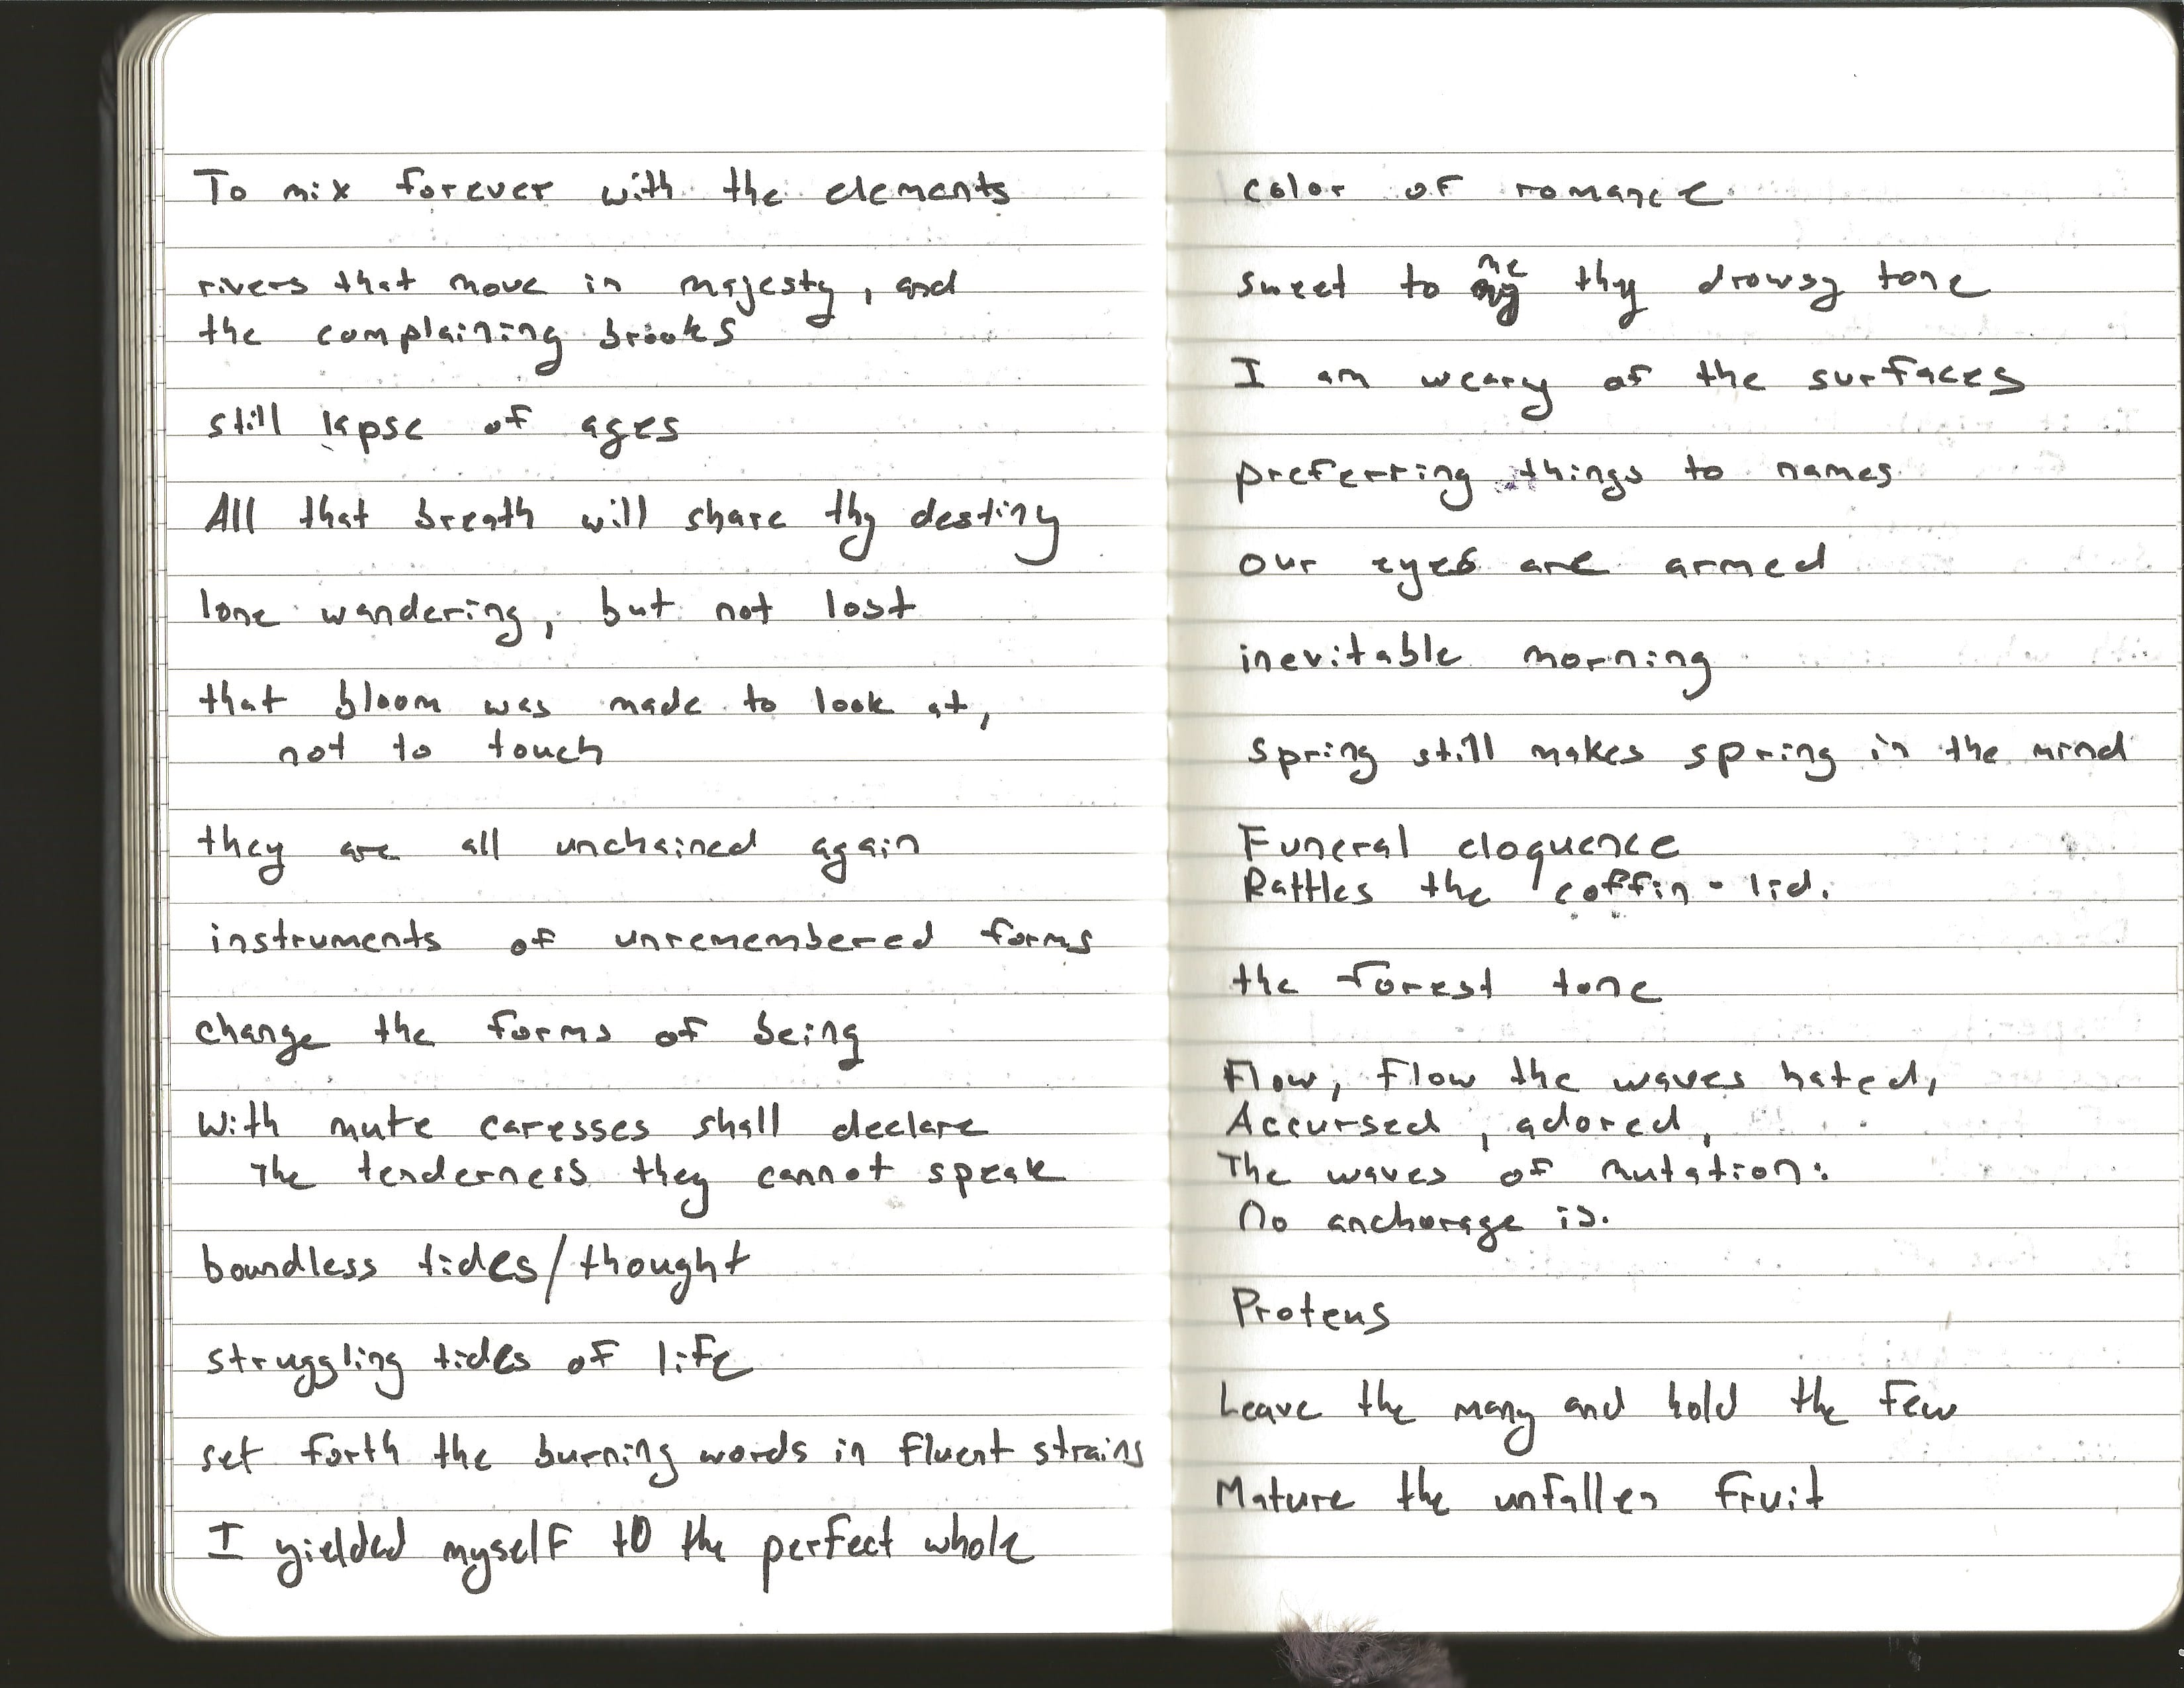 To mix forever with the elements
rivers that move in majesty, and
the complaining brooks
still lapse of ages
All that breath will share thy destiny
lone wandering, but not lost
that bloom was made to look at,
not to touch
they are all unchained again
instruments of unremembered forms
change the forms of being
With mute caresses shall declare
The tenderness they cannot speak
boundless tides/thought
struggling tides of life
set forth the burning words in fluent strains
I yielded myself to the perfect whole
color of romance
sweet to me thy drowsy tone
I am weary of the surfaces
preferring things to names
our eyes are armed
inevitable morning
Spring still makes spring in the mind
Funeral eloquence
Rattles the coffin-lid.
the forest tone
Flow, flow the waves hated,
Accursed, adored,
The waves of mutation:
No anchorage is.
Proteus
Leave the many and hold the few
Mature the unfallen fruit